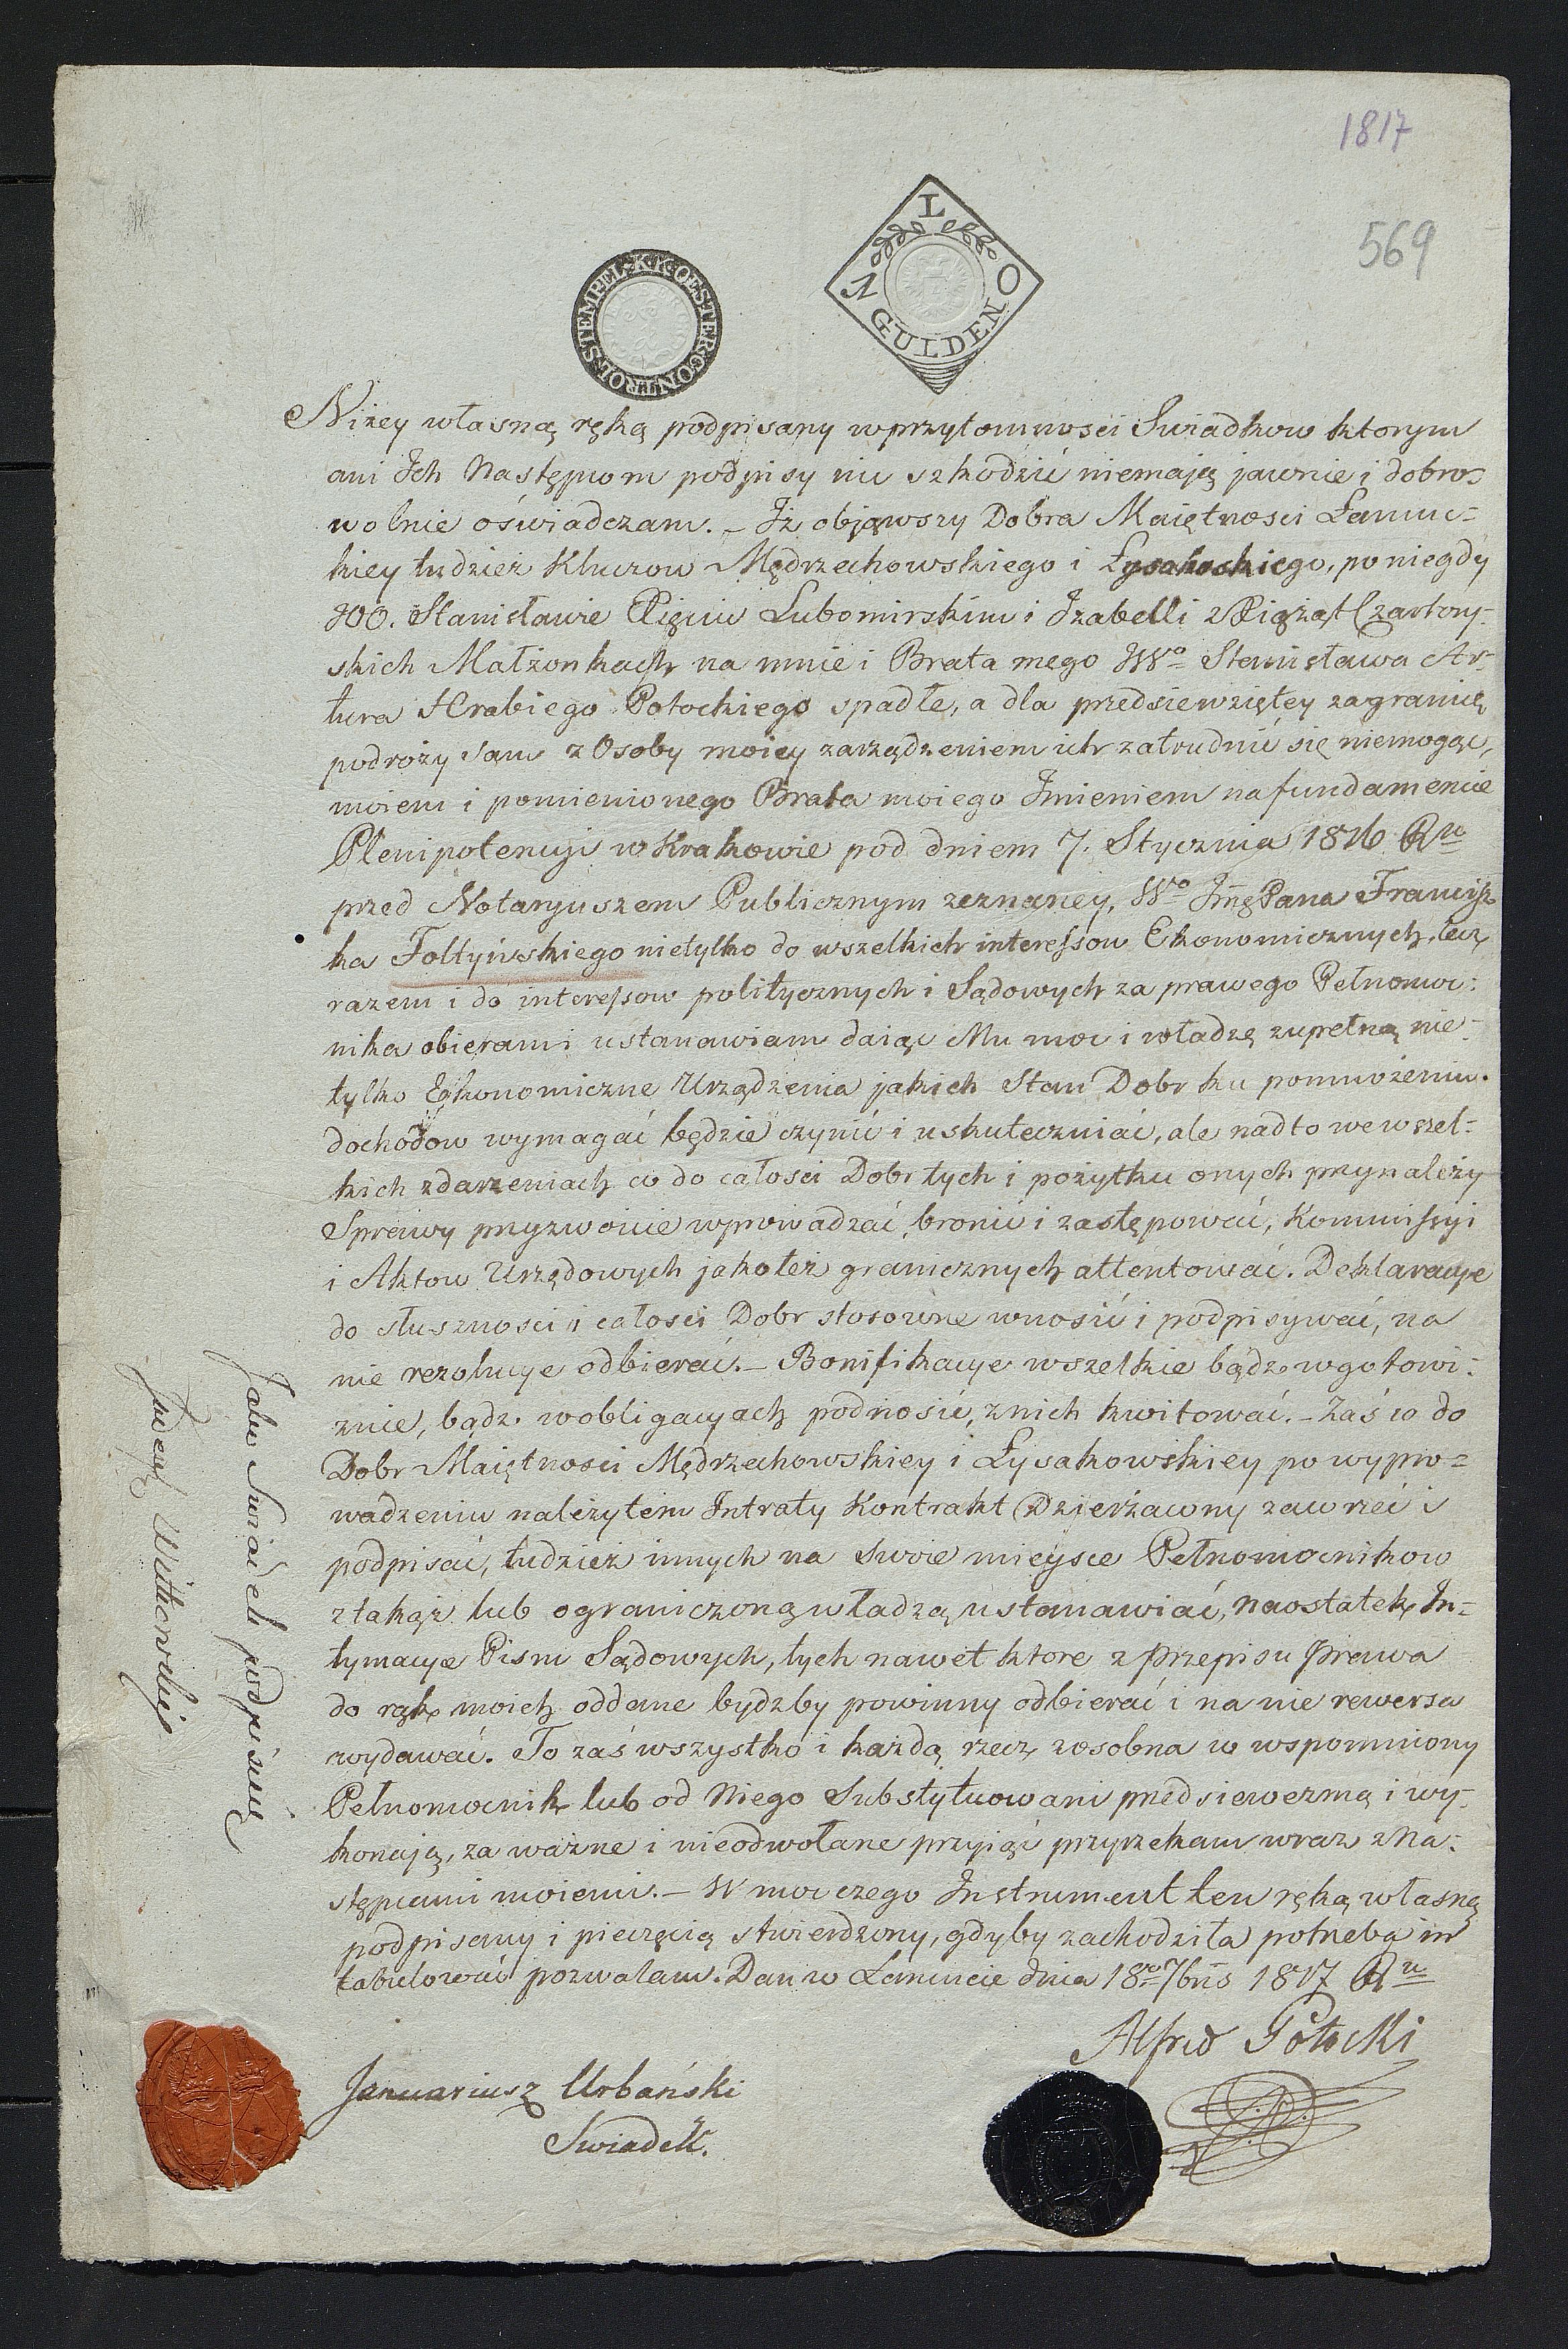 1817
569
K.K. OESTER. CONTROL. STEMPEL.
L
N O
GULDEN
Niżey własną ręką podpisany w przytomnosci Swiadkow ktorym
ani Ich Następcom podpisy nic szkodzić niemają jawnie i dobro=
wolnie oświadczam. – Iż objąwszy Dobra Maiętnosci Łańcuc=
kiey tudzież Kluczow Mędrzechowskiego i Łysakoskiego, po niegdy
JOO. Stanisławie Xięciu Lubomirskim i Izabelli z Xiążąt Czartory=
skich Małżonkach na mnie i Brata mego JWo Stanisława Ar=
tura Hrabiego Potockiego spadłe, a dla przedsiewziętey zagranicę
podroży sam z Osoby moiey zarządzeniem ich zatrudnić się niemogąc,
moiem i pomienionego Brata moiego Imieniem na fundamencie
Plenipotencyi w Krakowie pod dniem 7. Stycznia 1816 Ru
przed Notaryuszem Publicznym zeznaney, Wo Jmę Pana Francisz
ka Foltyńskiego nietylko do wszelkich interessow Ekonomicznych, lecz
razem i do interessow politycznych i Sądowych za prawego Pełnomoc=
nika obieram i ustanawiam daiąc Mu moc i władzę zupełną nie=
tylko Ekonomiczne Urządzenia jakich Stan Dobr ku pomnożeniu
dochodow wymagać będzie czynić i uskuteczniać, ale nadto we wszel=
kich zdarzeniach co do całosci Dobr tych i pożytku onych przynależy
Sprawy przyzwoicie wprowadzać, bronić i zastępować, Kommissyi
i Aktow Urzędowych jakoteż granicznych attentować. Deklaracye
do słusznosci i całosci Dobr stosowne wnosić i podpisywać, na
nie rezolucye odbierać. – Bonifikacye wszelkie bądz w gotowi=
znie, bądz w obligacyach podnosić, z nich kwitować. – Zaś co do
Dobr Maiętnosci Mędrzechowskiey i Łysakowskiey po wypro=
wadzeniu należytem Intraty Kontrakt Dzierżawny zawrzeć i
podpisać, tudzież innych na swoie mieysce Pełnomocnikow
z takąż lub ograniczoną władzą ustanawiać, naostatek In=
tymacye Pism Sądowych, tych nawet ktore z przepisu prawa
do rąk moich oddane bydzby powinny odbierać i na nie rewersa
wydawać. To zaś wszystko i każdą rzecz zosobna w wspomniony
Pełnomocnik lub od Niego Substytuowani przedsiewezmą i wy=
konają, za ważne i nieodwołane przyjąć przyrzekam wraz z Na=
stępcami moiemi. – W moc czego Instrument ten ręką własną
podpisany i pieczęcią stwierdzony, gdyby zachodziła potrzeba in
tabulować pozwalam. Dan w Łańcucie dnia 18o 7bris 1817 Ru
Alfred Potocki
Januariusz Urbański
Swiadek.
Jako Swiadek podpisuię
Witkowskij